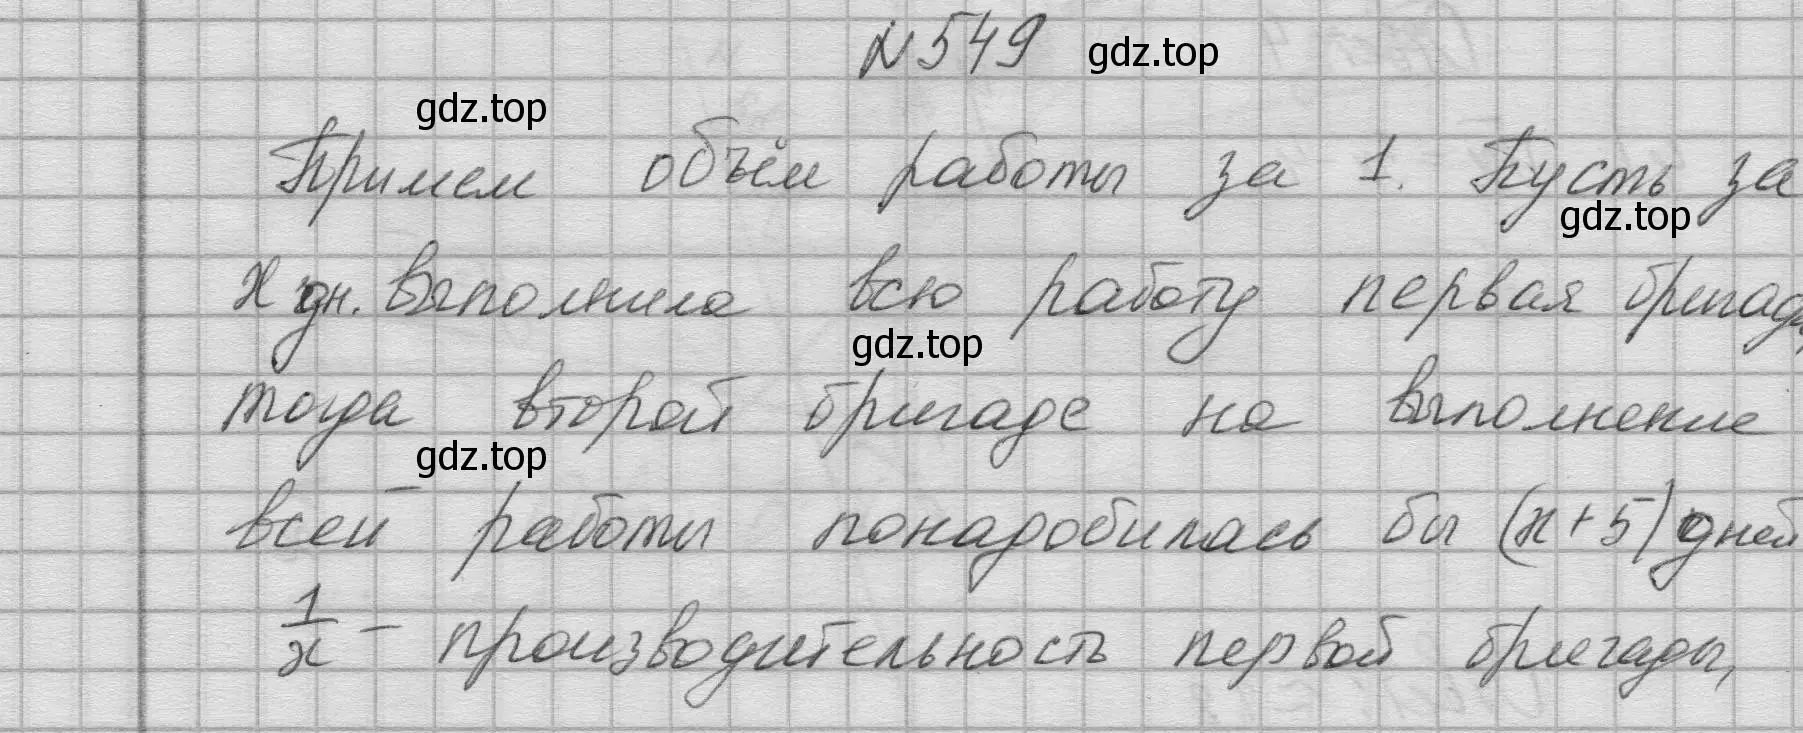 №549 gdz.top
gdz.top
Примем объём работы за 1. Пусть за
gdz.top
х дн. выполнила всю работу первая бригада,
gdz.top
тогда второй бригаде на выполнение
gdz.top
всей работы понадобилась бы (x+5) дней
1/x - производительность первой бригады,